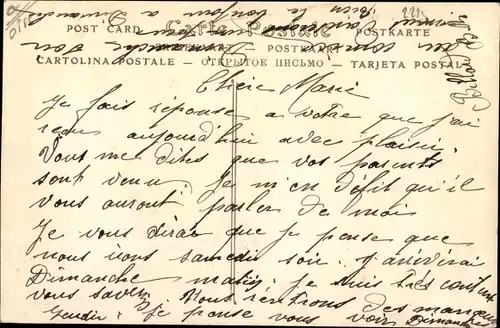 Carte Postale
POST CARD POSTKARTE
POSTKAART
CARTOLINA POSTALE — ОТКРЫТОЕ ПИСЬМО — TARJETA POSTAL
Chère Marie
Je fais réponse a votre que j'ai
reçus aujourd'hui avec plaisir.
Vous me dites que vos parents
sont venu. Je m'en défit qu'il
vous auront parler de moi
Je vous dirai que je pense que
nous nous samedi soir. J'arriverai
Dimanche matin, je suis très content
vous savez. Nous rentrons des manœu
Jeudi. je pense vous voir Dimanche